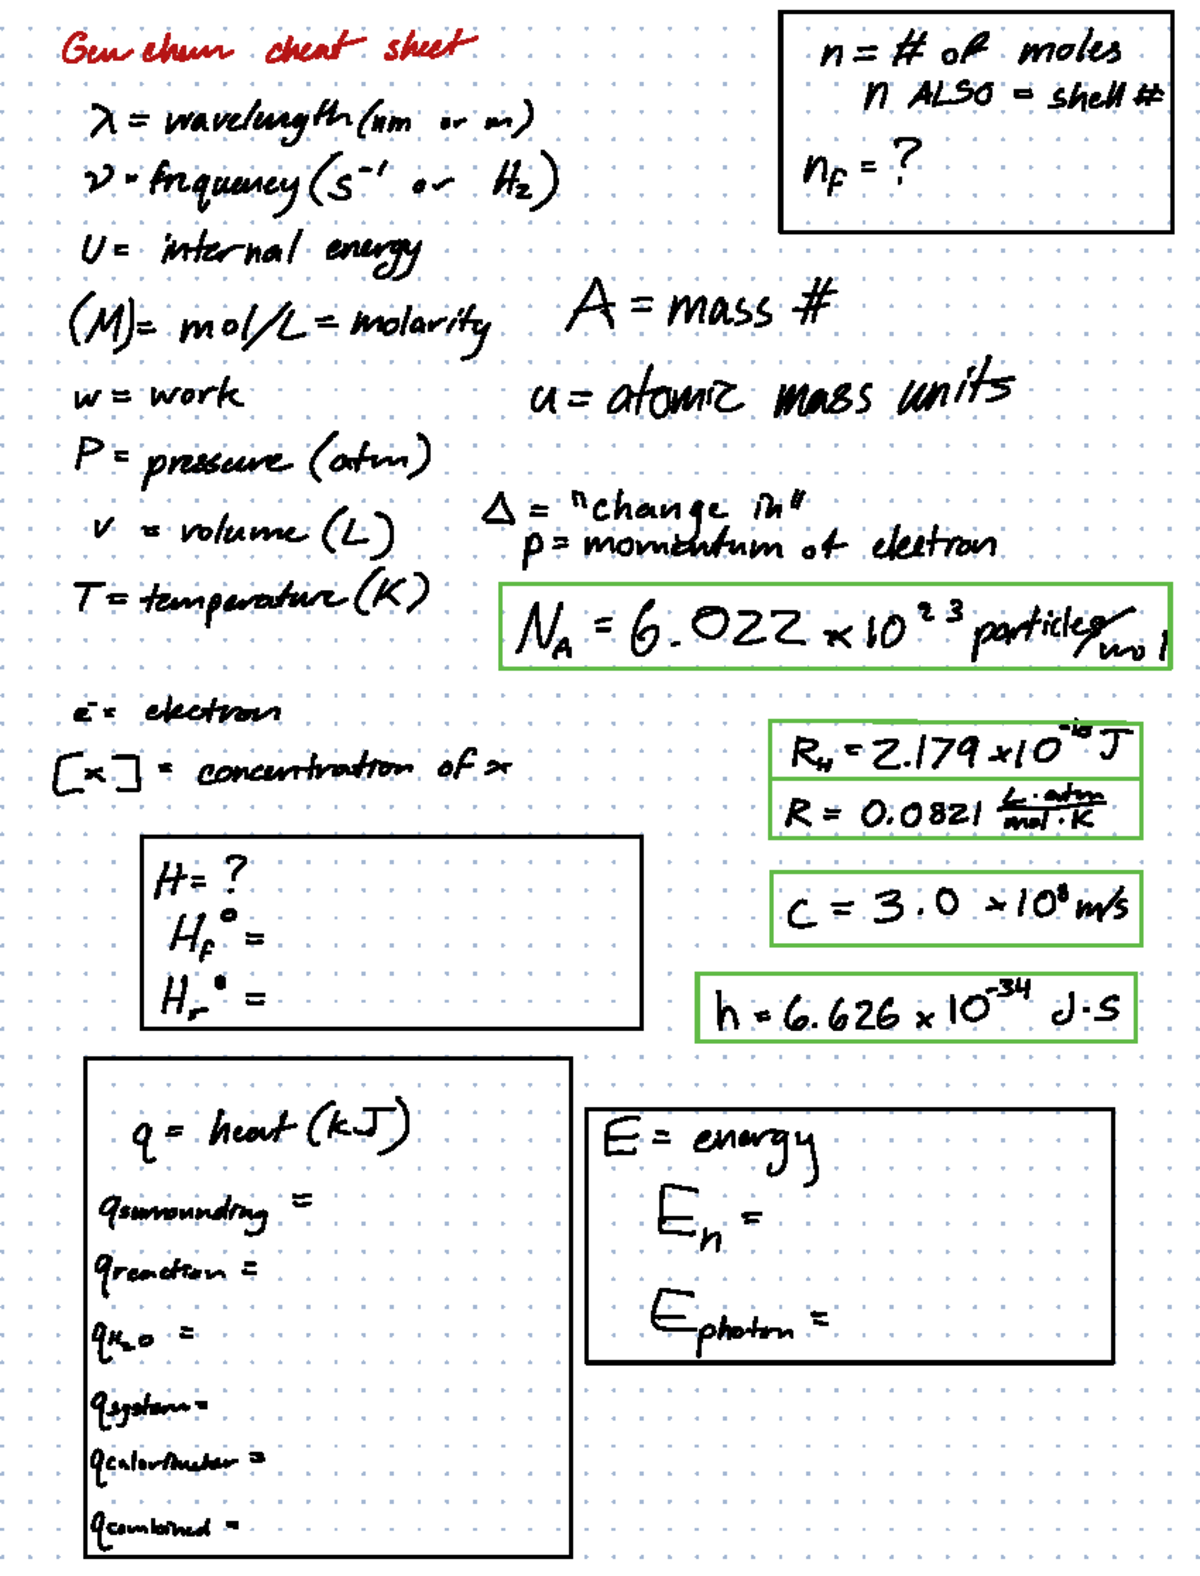 Gen chem cheat sheet
λ = wavelength (nm or m)
ν = frequency (s⁻¹ or Hz)
U = internal energy
(M) = mol/L = molarity
w = work
P = pressure (atm)
V = volume (L)
T = temperature (K)
e⁻ = electron
[x] = concentration of x
n = # of moles
n ALSO = shell #
n_f = ?
A = mass #
u = atomic mass units
Δ = "change in"
p = momentum of electron
N_A = 6.022 × 10²³ particles/mol
R_H = 2.179 × 10⁻¹⁸ J
R = 0.0821 L·atm/mol·K
c = 3.0 × 10⁸ m/s
h = 6.626 × 10⁻³⁴ J·s
H = ?
H_f° =
H_r° =
q = heat (kJ)
q_surrounding =
q_reaction =
q_H₂O =
q_system =
q_calorimeter =
q_combined =
E = energy
E_n =
E_photon =